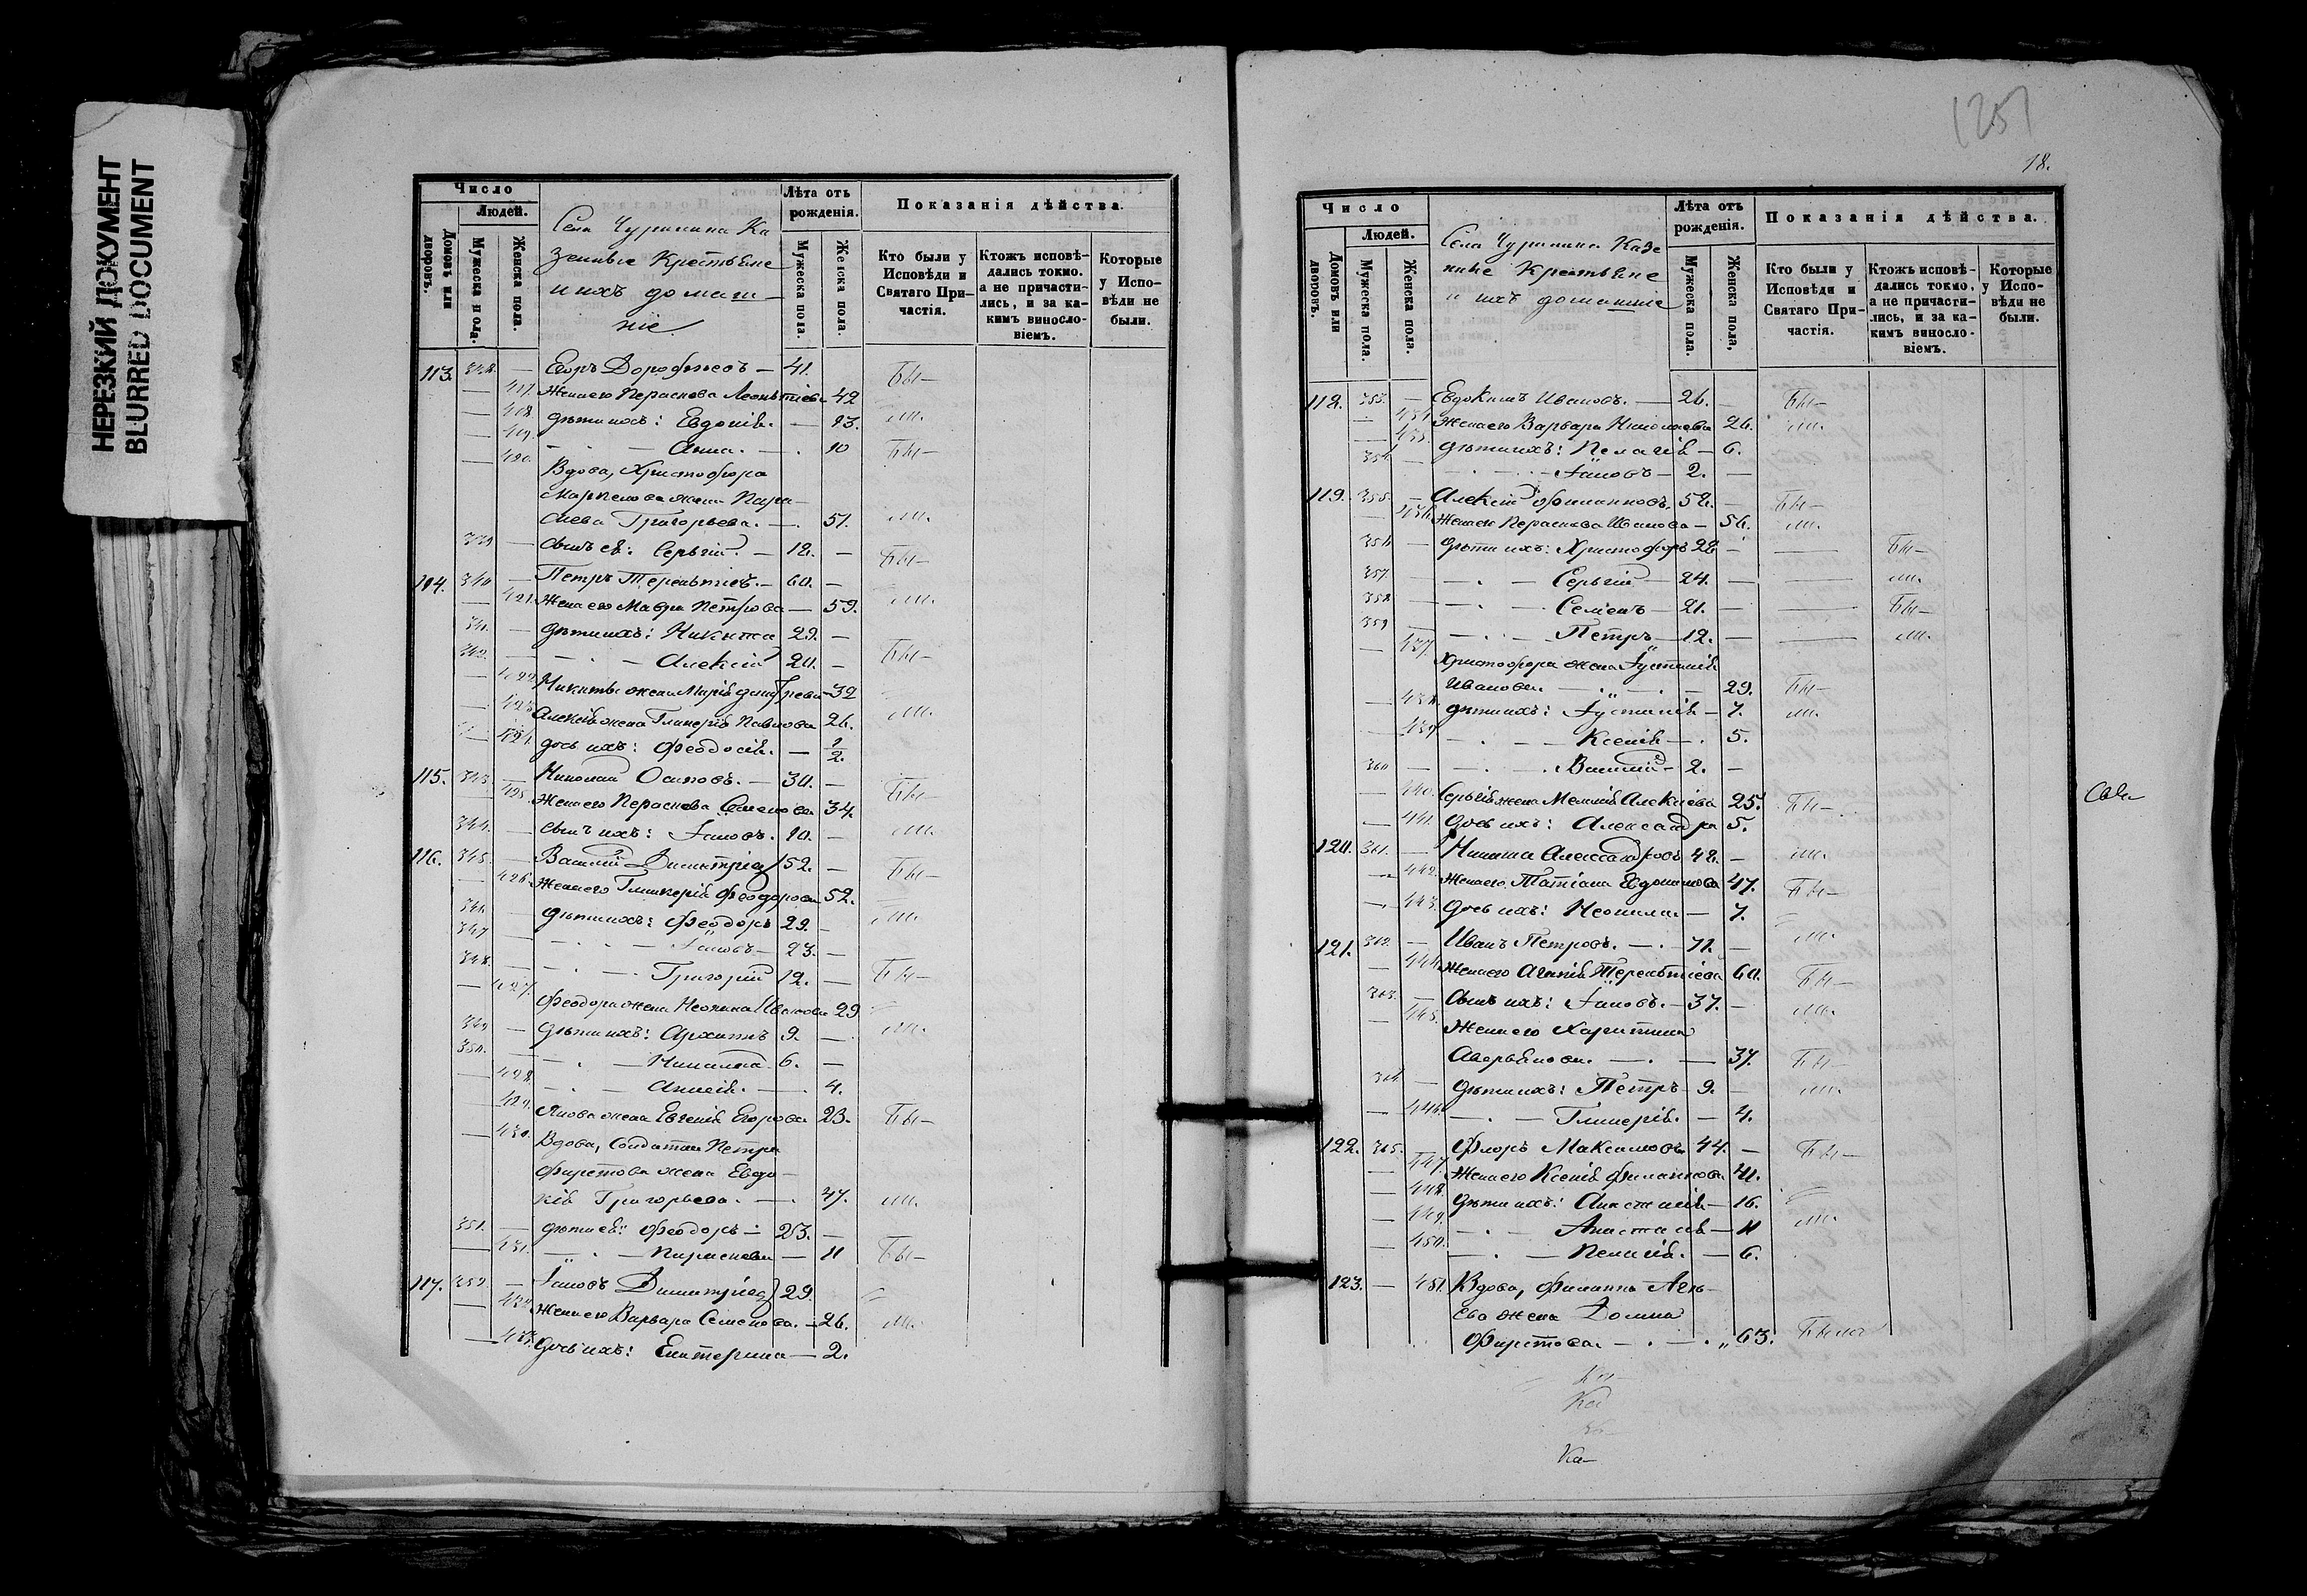 НЕРЕЗКИЙ ДОКУМЕНТ
BLURRED DOCUMENT
Число
Людей.
Домовъ или дворовъ.
Мужеска пола.
Женска пола.
Села Чурикина Ка
зенные Крестьяне
и ихъ домаш-
ніе
Лѣта отъ рожденія.
Мужеска пола.
Женска пола.
Показанія дѣйства.
Кто были у Исповѣди и Святаго Причастія.
Ктожъ исповѣдались токмо, а не причастились, и за какимъ винословіемъ.
Которые у Исповѣди не были.
113. 338. — Егоръ Дорофѣевъ — 41. Бы-
— 417. Жена его Параскева Леонтіева 42
— 418. дѣти ихъ: Евдокія. — 13. ли.
— 419. — Анна. — 10 Бы-
— 420. Вдова, Христофора
Карпова жена Пара-
скева Григорьева. — 51. ли.
339 — сынъ ея: Сергій. — 12. — Бы-
114. 340 — Петръ Терентіевъ. — 60. —
— 421. Жена его Мавра Петрова — 59. ли.
341. — дѣти ихъ: Никита 29. —
342. — Алексій 20. — Бы-
— 422 Никиты жена Марія 32
— 423 Алексія жена Гликерія Павлова 26. ли.
— 424. дочь ихъ: Феодосія. — 1/2.
115. 343. — Николай Осиповъ. — 30. — Бы-
— 425. Жена его Параскева Семенова 34.
344. — сынъ ихъ: Іаковъ. 10. — ли.
116. 345. — Василій Димитріев 52. — Бы-
— 426. Жена его Гликерія Феодорова 52.
346. — дѣти ихъ: Феодоръ 29. — ли.
347 — Іаковъ — 23. —
348. — Григорій 12. — Бы-
— 427. Феодора жена Неонила Иванова 29
349 — дѣти ихъ: Архипъ 9. — ли.
350. — Никита 6. —
— 428. — Анисія. — 4.
— 429. Якова жена Евгенія Егорова 23. Бы-
— 430. Вдова, Солдатка Петра
Фирстова жена Евдо-
кія Григорьева. — 47. ли.
351. — дѣти ея: Феодоръ — 23. —
— 431. — Параскева — 11 Бы-
117. 352. — Іаковъ Димитріев 29.
— 432. Жена его Варвара Семенова. — 26. ли.
— 433. дочь ихъ: Екатерина — 2.
1251
18.
Число
Людей.
Домовъ или дворовъ.
Мужеска пола.
Женска пола.
Села Чурикина Казе
нные Крестьяне
и ихъ домашніе
Лѣта отъ рожденія.
Мужеска пола.
Женска пола,
Показанія дѣйства.
Кто были у Исповѣди и Святаго Причастія.
Ктожъ исповѣдались токмо, а не причастились, и за какимъ винословіемъ.
Которые у Исповѣди не были.
118. 353. — Евдокимъ Ивановъ. — 26. — Бы-
— 434. Жена его Варвара Николаева 26. ли.
— 435. дѣти ихъ: Пелагія — 6.
354 — Іаковъ — 2. —
119. 355. — Алексій Филипповъ 58. — Бы-
— 436. Жена его Параскева Иванова — 56. ли.
356 — дѣти ихъ: Христофоръ 28 — Бы-
357. — Сергій — 24. — ли.
358 — Семенъ — 21. — Бы-
359 — Петръ — 12. — ли.
— 437. Христофора жена Іустинія
Иванова. — 29. Бы-
— 438. дѣти ихъ: Іустинія — 7. ли.
— 439. — Ксенія — 5.
360 — Василій — 2. —
— 440. Сергія жена Меланія Алексіева 25. Бы-
— 441. дочь ихъ: Александра 5.
120. 361. — Никита Александровъ 48. — ли.
— 442. Жена его Татіана Евдокимова 47. Бы-
— 443. дочь ихъ: Неонила. — 7.
121. 362. — Иванъ Петровъ. — 71. — ли.
— 444. Жена его Агапія Терентіева 60. Бы-
363. — Сынъ ихъ: Іаковъ. — 37. — ли.
— 445. Жена его Харитина
Аверьянова. — 37. Бы-
364 — дѣти ихъ: Петръ — 9. — ли.
— 446. — Гликерія. — 4.
122. 365. — Флоръ Максимовъ 44. — Бы-
— 447. Жена его Ксенія Филиппова 41.
— 448. дѣти ихъ: Анастасія — 16.
— 449. — Анастасія — 11 ли.
— 450. — Пелагія. — 6.
123. — 451. Вдова, Филиппа
ева жена Домна
Фирстова. — 63. Была
Ка-